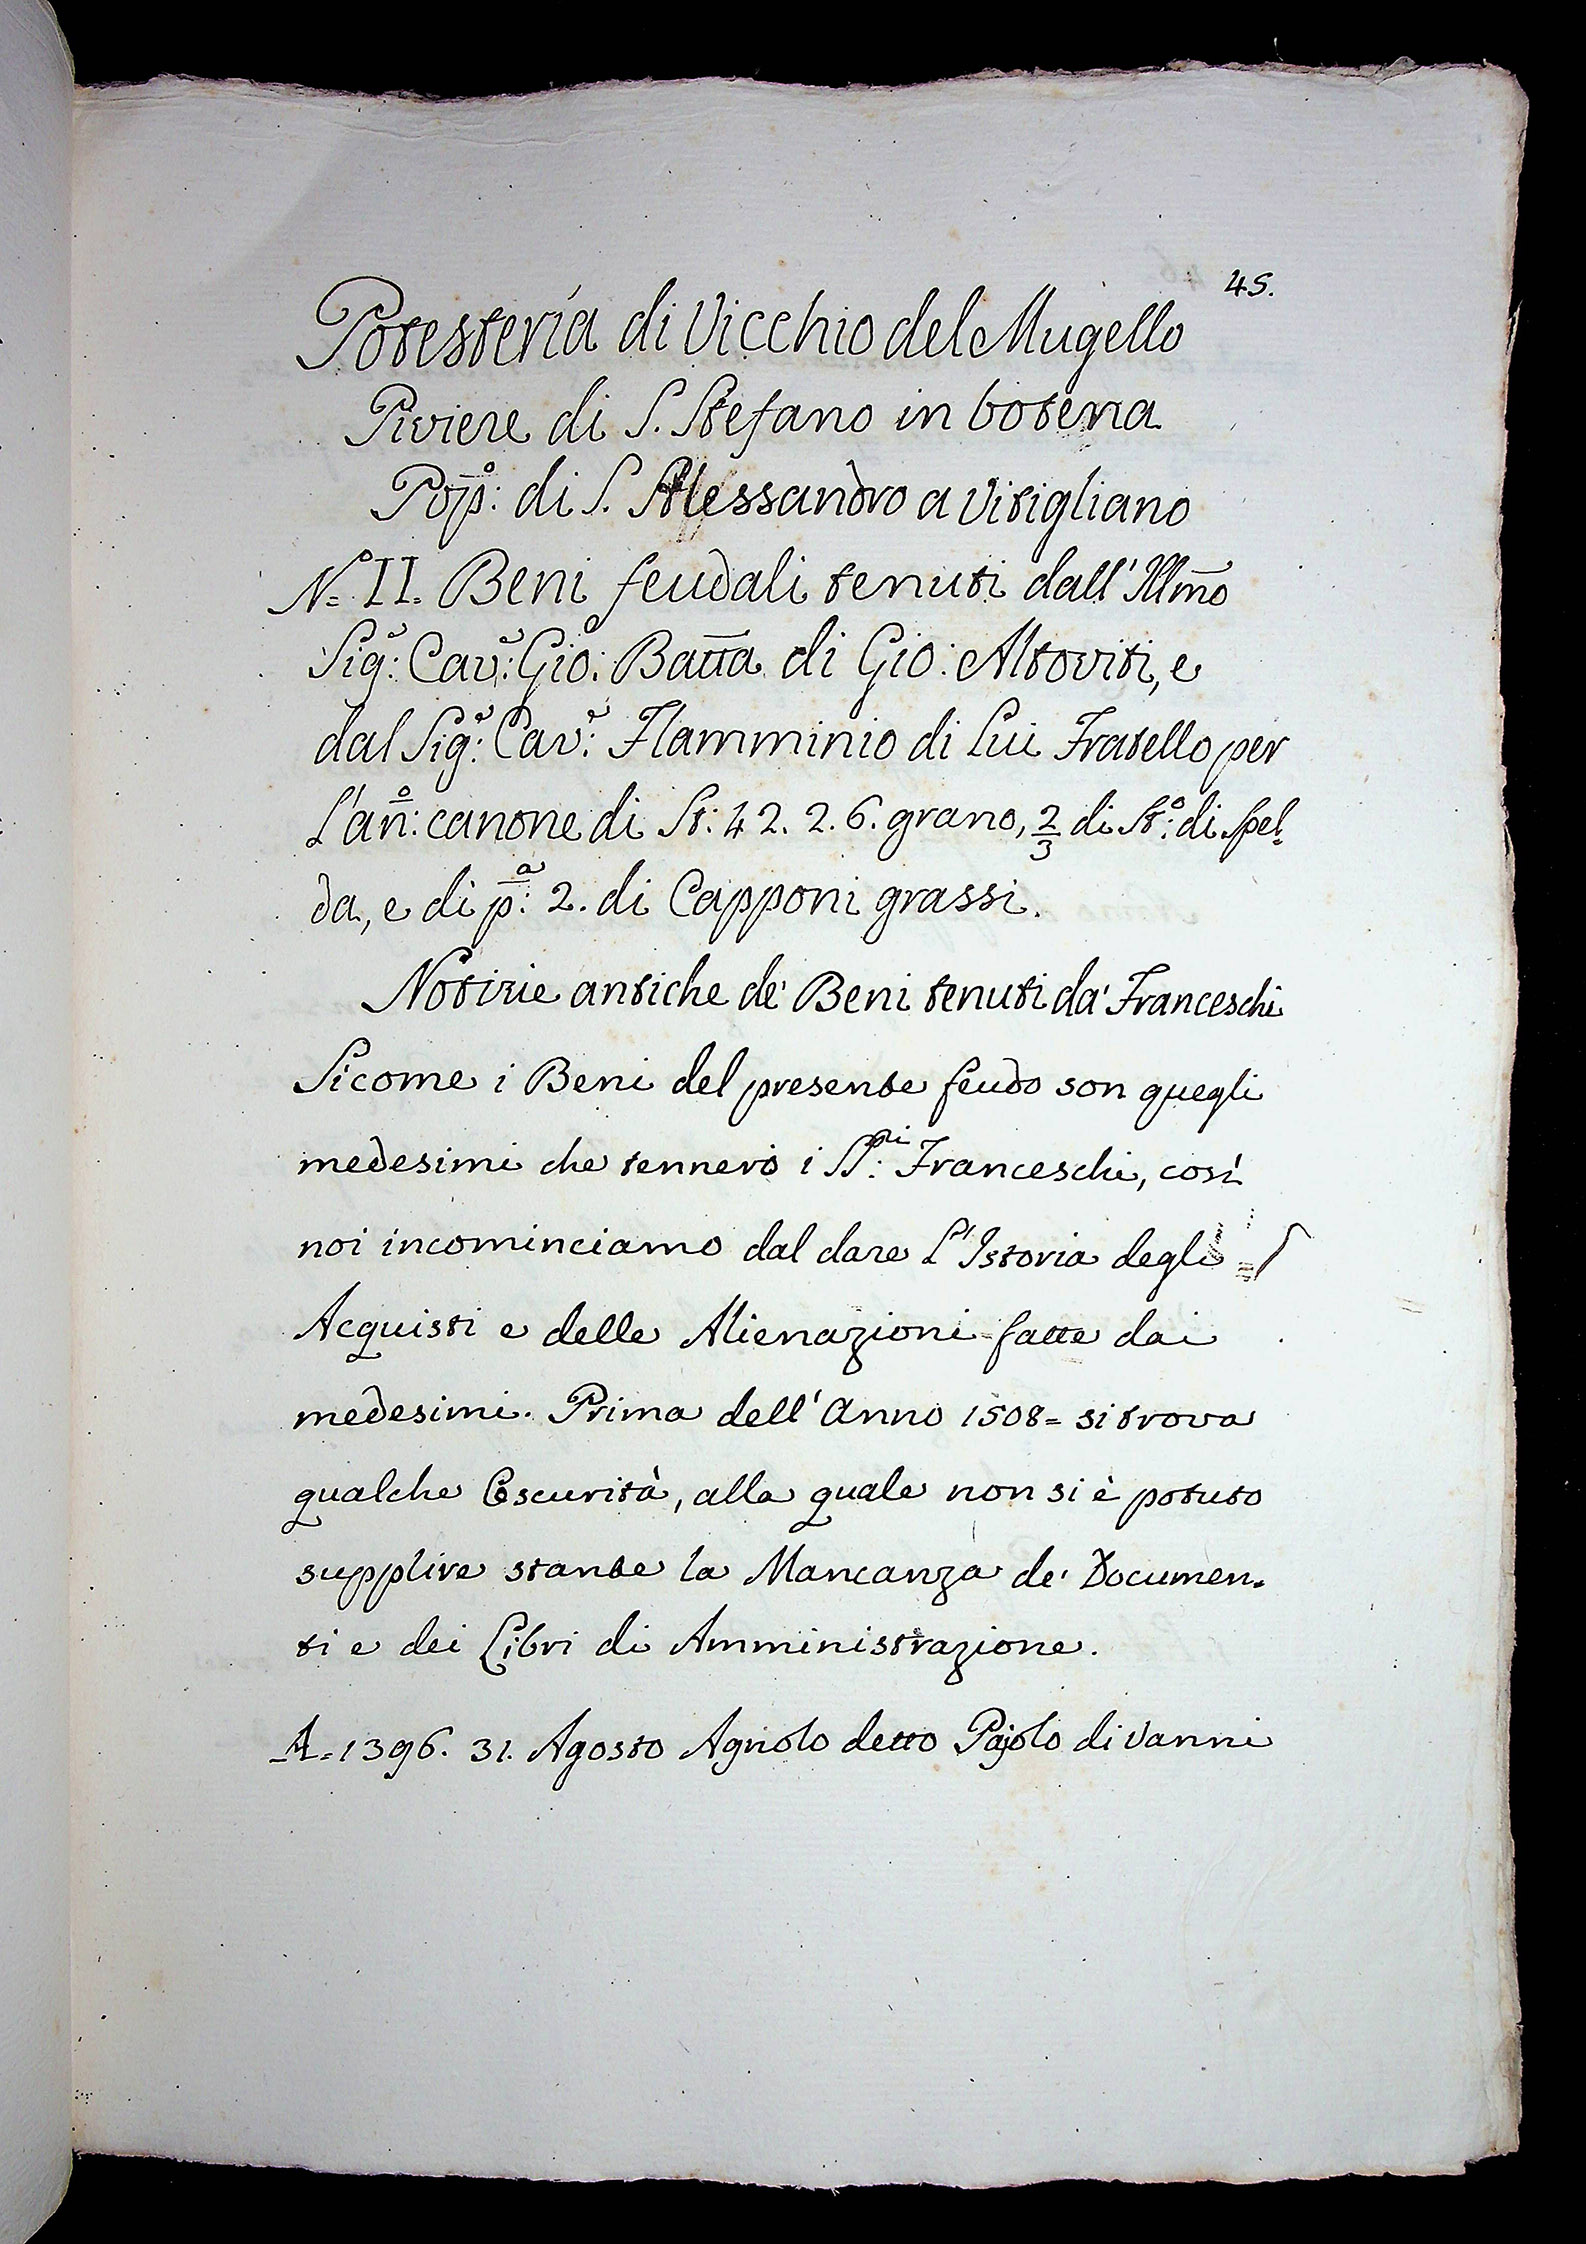 45.
Potesterìa di Vicchio del Mugello
Piviere di S. Stefano in botena
Pop:º di S. Alessandro a Vitigliano
Nº= II. Beni feudali tenuti dall' Illmo
Sig:r Cav:r Gio: Batta di Gio: Altoviti, e
dal Sig:r Cav:r Flamminio di Lui Fratello per
L'an:º canone di St: 42. 2. 6. grano, 2/3 di St:º di Spel-
da, e di p:a 2. di Capponi grassi.
Notizie antiche de' Beni tenuti da' Franceschi
Sicome i Beni del presente feudo son quegli
medesimi che tennero i SS:ri Franceschi, così
noi incominciamo dal dare L'Istoria degli
Acquisti e delle Alienazioni fatte dai
medesimi. Prima dell'Anno 1508= si trova
qualche Oscurità, alla quale non si è potuto
supplire stante la Mancanza de' Documen-
ti e dei Libri di Amministrazione.
A=1396. 31. Agosto Agnolo detto Pajolo di Vanni